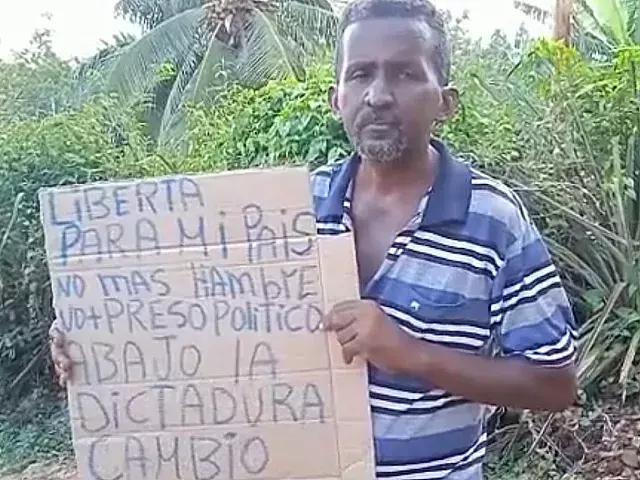 LIBERTA
PARA Mi PAiS
NO MAS HAMBRE
NO+PRESO POLITICO
ABAJO lA
DiCTADURA
CAMBiO